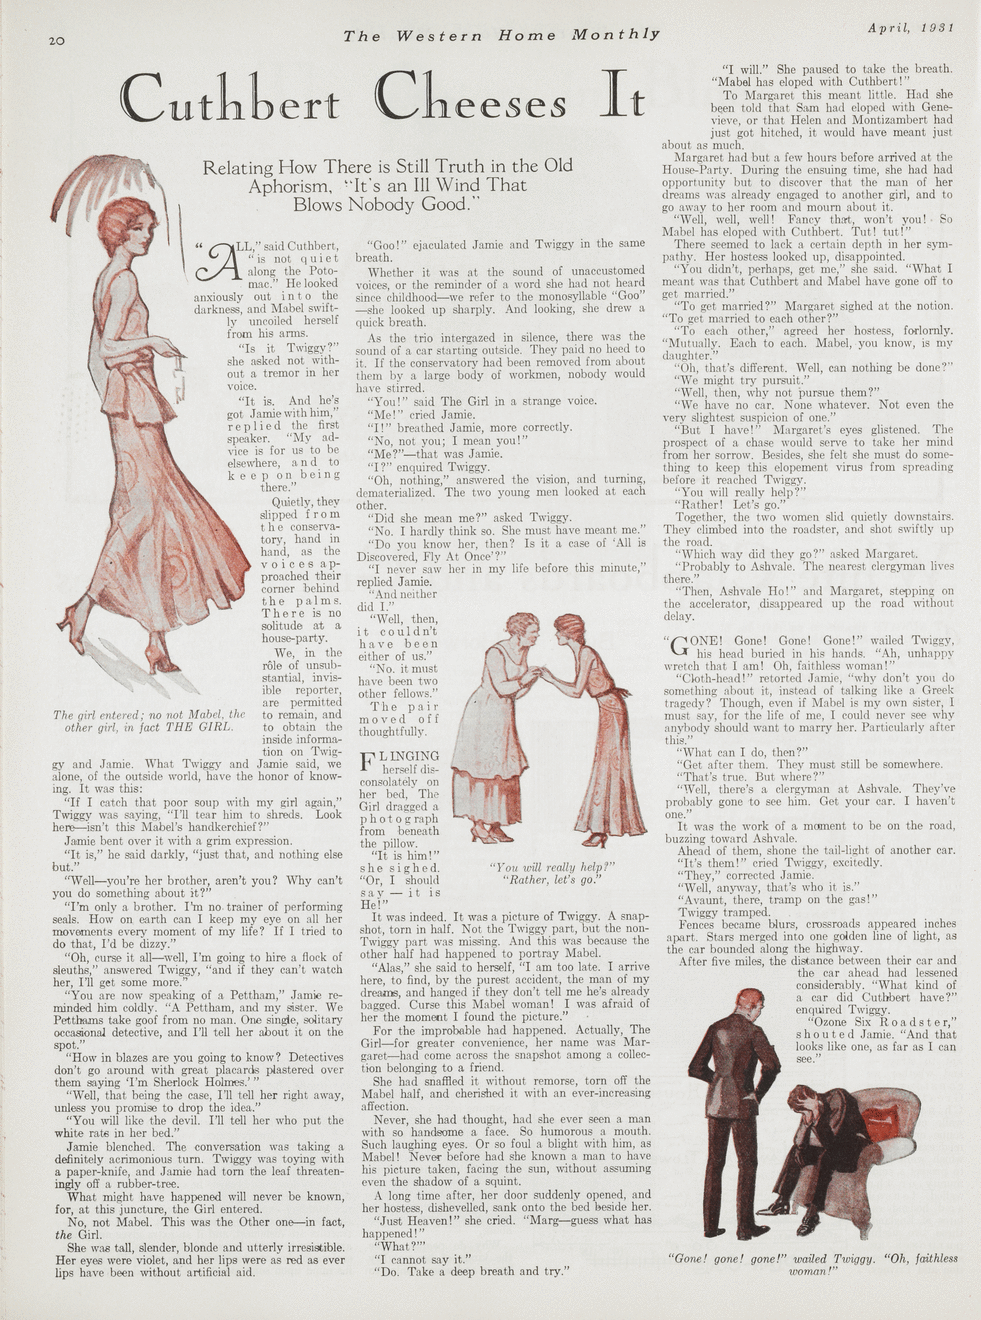 20
The Western Home Monthly
April, 1931
Cuthbert Cheeses It
Relating How There is Still Truth in the Old
Aphorism, "It's an Ill Wind That
Blows Nobody Good."
"ALL," said Cuthbert,
"is not quiet
along the Poto-
mac." He looked
anxiously out into the
darkness, and Mabel swift-
ly uncoiled herself
from his arms.
"Is it Twiggy?"
she asked not with-
out a tremor in her
voice.
"It is. And he's
got Jamie with him,"
replied the first
speaker. "My ad-
vice is for us to be
elsewhere, and to
keep on being
there."
Quietly, they
slipped from
the conserva-
tory, hand in
hand, as the
voices ap-
proached their
corner behind
the palms.
There is no
solitude at a
house-party.
We, in the
rôle of unsub-
stantial, invis-
ible reporter,
are permitted
to remain, and
to obtain the
inside informa-
tion on Twig-
The girl entered; no not Mabel, the
other girl, in fact THE GIRL.
gy and Jamie. What Twiggy and Jamie said, we
alone, of the outside world, have the honor of know-
ing. It was this:
"If I catch that poor soup with my girl again,"
Twiggy was saying, "I'll tear him to shreds. Look
here—isn't this Mabel's handkerchief?"
Jamie bent over it with a grim expression.
"It is," he said darkly, "just that, and nothing else
but."
"Well—you're her brother, aren't you? Why can't
you do something about it?"
"I'm only a brother. I'm no trainer of performing
seals. How on earth can I keep my eye on all her
movements every moment of my life? If I tried to
do that, I'd be dizzy."
"Oh, curse it all—well, I'm going to hire a flock of
sleuths," answered Twiggy, "and if they can't watch
her, I'll get some more."
"You are now speaking of a Pettham," Jamie re-
minded him coldly. "A Pettham, and my sister. We
Petthams take goof from no man. One single, solitary
occasional detective, and I'll tell her about it on the
spot."
"How in blazes are you going to know? Detectives
don't go around with great placards plastered over
them saying 'I'm Sherlock Holmes.'"
"Well, that being the case, I'll tell her right away,
unless you promise to drop the idea."
"You will like the devil. I'll tell her who put the
white rats in her bed."
Jamie blenched. The conversation was taking a
definitely acrimonious turn. Twiggy was toying with
a paper-knife, and Jamie had torn the leaf threaten-
ingly off a rubber-tree.
What might have happened will never be known,
for, at this juncture, the Girl entered.
No, not Mabel. This was the Other one—in fact,
the Girl.
She was tall, slender, blonde and utterly irresistible.
Her eyes were violet, and her lips were as red as ever
lips have been without artificial aid.
"Goo!" ejaculated Jamie and Twiggy in the same
breath.
Whether it was at the sound of unaccustomed
voices, or the reminder of a word she had not heard
since childhood—we refer to the monosyllable "Goo"
—she looked up sharply. And looking, she drew a
quick breath.
As the trio intergazed in silence, there was the
sound of a car starting outside. They paid no heed to
it. If the conservatory had been removed from about
them by a large body of workmen, nobody would
have stirred.
"You!" said The Girl in a strange voice.
"Me!" cried Jamie.
"I!" breathed Jamie, more correctly.
"No, not you; I mean you!"
"Me?"—that was Jamie.
"I?" enquired Twiggy.
"Oh, nothing," answered the vision, and turning,
dematerialized. The two young men looked at each
other.
"Did she mean me?" asked Twiggy.
"No. I hardly think so. She must have meant me."
"Do you know her, then? Is it a case of 'All is
Discovered, Fly At Once'?"
"I never saw her in my life before this minute,"
replied Jamie.
"And neither
did I."
"Well, then,
it couldn't
have been
either of us."
"No. it must
have been two
other fellows."
The pair
moved off
thoughtfully.
FLINGING
herself dis-
consolately on
her bed, The
Girl dragged a
photograph
from beneath
the pillow.
"It is him!"
she sighed.
"Or, I should
say — it is
He!"
"You will really help?"
"Rather, let's go."
It was indeed. It was a picture of Twiggy. A snap-
shot, torn in half. Not the Twiggy part, but the non-
Twiggy part was missing. And this was because the
other half had happened to portray Mabel.
"Alas," she said to herself, "I am too late. I arrive
here, to find, by the purest accident, the man of my
dreams, and hanged if they don't tell me he's already
bagged. Curse this Mabel woman! I was afraid of
her the moment I found the picture."
For the improbable had happened. Actually, The
Girl—for greater convenience, her name was Mar-
garet—had come across the snapshot among a collec-
tion belonging to a friend.
She had snaffled it without remorse, torn off the
Mabel half, and cherished it with an ever-increasing
affection.
Never, she had thought, had she ever seen a man
with so handsome a face. So humorous a mouth.
Such laughing eyes. Or so foul a blight with him, as
Mabel! Never before had she known a man to have
his picture taken, facing the sun, without assuming
even the shadow of a squint.
A long time after, her door suddenly opened, and
her hostess, dishevelled, sank onto the bed beside her.
"Just Heaven!" she cried. "Marg—guess what has
happened!"
"What?"
"I cannot say it."
"Do. Take a deep breath and try."
"I will." She paused to take the breath.
"Mabel has eloped with Cuthbert!"
To Margaret this meant little. Had she
been told that Sam had eloped with Gene-
vieve, or that Helen and Montizambert had
just got hitched, it would have meant just
about as much.
Margaret had but a few hours before arrived at the
House-Party. During the ensuing time, she had had
opportunity but to discover that the man of her
dreams was already engaged to another girl, and to
go away to her room and mourn about it.
"Well, well, well! Fancy that, won't you! So
Mabel has eloped with Cuthbert. Tut! tut!"
There seemed to lack a certain depth in her sym-
pathy. Her hostess looked up, disappointed.
"You didn't, perhaps, get me," she said. "What I
meant was that Cuthbert and Mabel have gone off to
get married."
"To get married?" Margaret sighed at the notion.
"To get married to each other?"
"To each other," agreed her hostess, forlornly.
"Mutually. Each to each. Mabel, you know, is my
daughter."
"Oh, that's different. Well, can nothing be done?"
"We might try pursuit."
"Well, then, why not pursue them?"
"We have no car. None whatever. Not even the
very slightest suspicion of one."
"But I have!" Margaret's eyes glistened. The
prospect of a chase would serve to take her mind
from her sorrow. Besides, she felt she must do some-
thing to keep this elopement virus from spreading
before it reached Twiggy.
"You will really help?"
"Rather! Let's go."
Together, the two women slid quietly downstairs.
They climbed into the roadster, and shot swiftly up
the road.
"Which way did they go?" asked Margaret.
"Probably to Ashvale. The nearest clergyman lives
there."
"Then, Ashvale Ho!" and Margaret, stepping on
the accelerator, disappeared up the road without
delay.
"GONE! Gone! Gone! Gone!" wailed Twiggy,
his head buried in his hands. "Ah, unhappy
wretch that I am! Oh, faithless woman!"
"Cloth-head!" retorted Jamie, "why don't you do
something about it, instead of talking like a Greek
tragedy? Though, even if Mabel is my own sister, I
must say, for the life of me, I could never see why
anybody should want to marry her. Particularly after
this."
"What can I do, then?"
"Get after them. They must still be somewhere.
"That's true. But where?"
"Well, there's a clergyman at Ashvale. They've
probably gone to see him. Get your car. I haven't
one."
It was the work of a moment to be on the road,
buzzing toward Ashvale.
Ahead of them, shone the tail-light of another car.
"It's them!" cried Twiggy, excitedly.
"They," corrected Jamie.
"Well, anyway, that's who it is."
"Avaunt, there, tramp on the gas!"
Twiggy tramped.
Fences became blurs, crossroads appeared inches
apart. Stars merged into one golden line of light, as
the car bounded along the highway.
After five miles, the distance between their car and
the car ahead had lessened
considerably. "What kind of
a car did Cuthbert have?"
enquired Twiggy.
"Ozone Six Roadster,"
shouted Jamie. "And that
looks like one, as far as I can
see."
"Gone! gone! gone!" wailed Twiggy. "Oh, faithless
woman!"